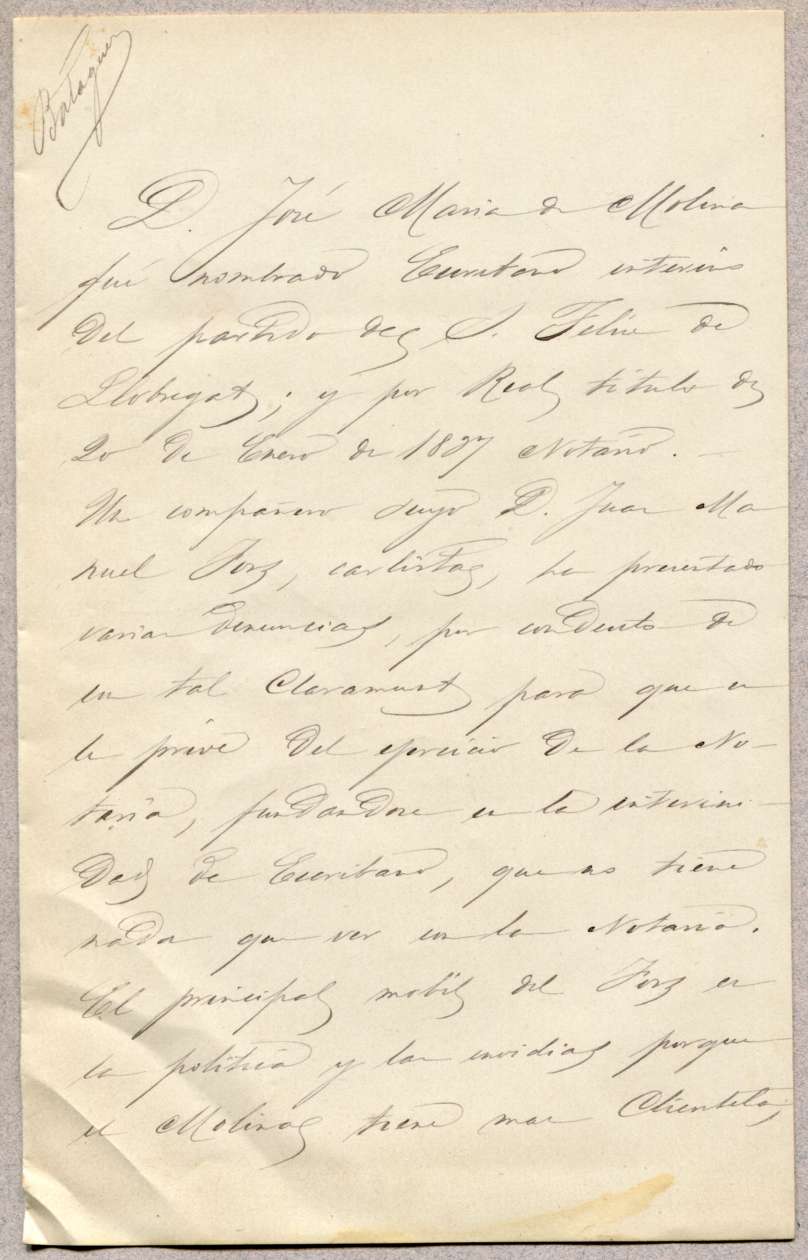 Balaguer
D. José Maria de Molina
fué nombrado Escribano interino
del partido de S. Feliu de
Llobregat; y por Real titulo de
20 de Enero de 1887 Notario.
Un compañero suyo D. Juan Ma
nuel Fors, carlista, ha presentado
varias denuncias, por conducto de
un tal Claramunt para que se
le prive del ejercicio de la No-
taria, fundandose en la interini-
dad de Escribano, que no tiene
nada que ver con la Notaria.
El principal mobil del Fors es
la politica y la envidia porque
el Molina tiene mas Clientela,